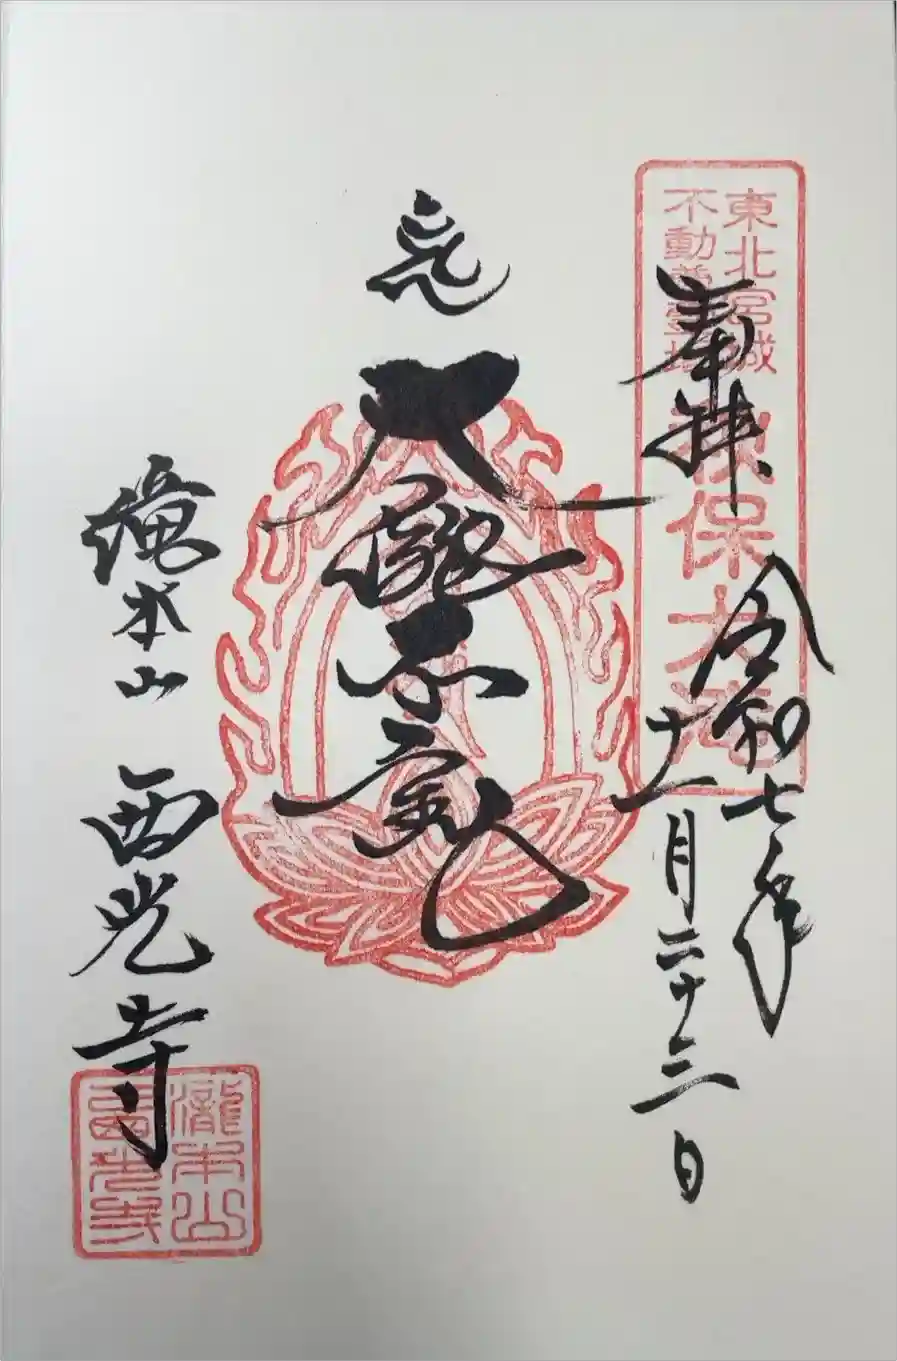 東北宮城
不動尊霊場
秋保大滝
奉拝
令和七年
十一月二十三日
滝本山 西光寺
瀧本山
西光寺